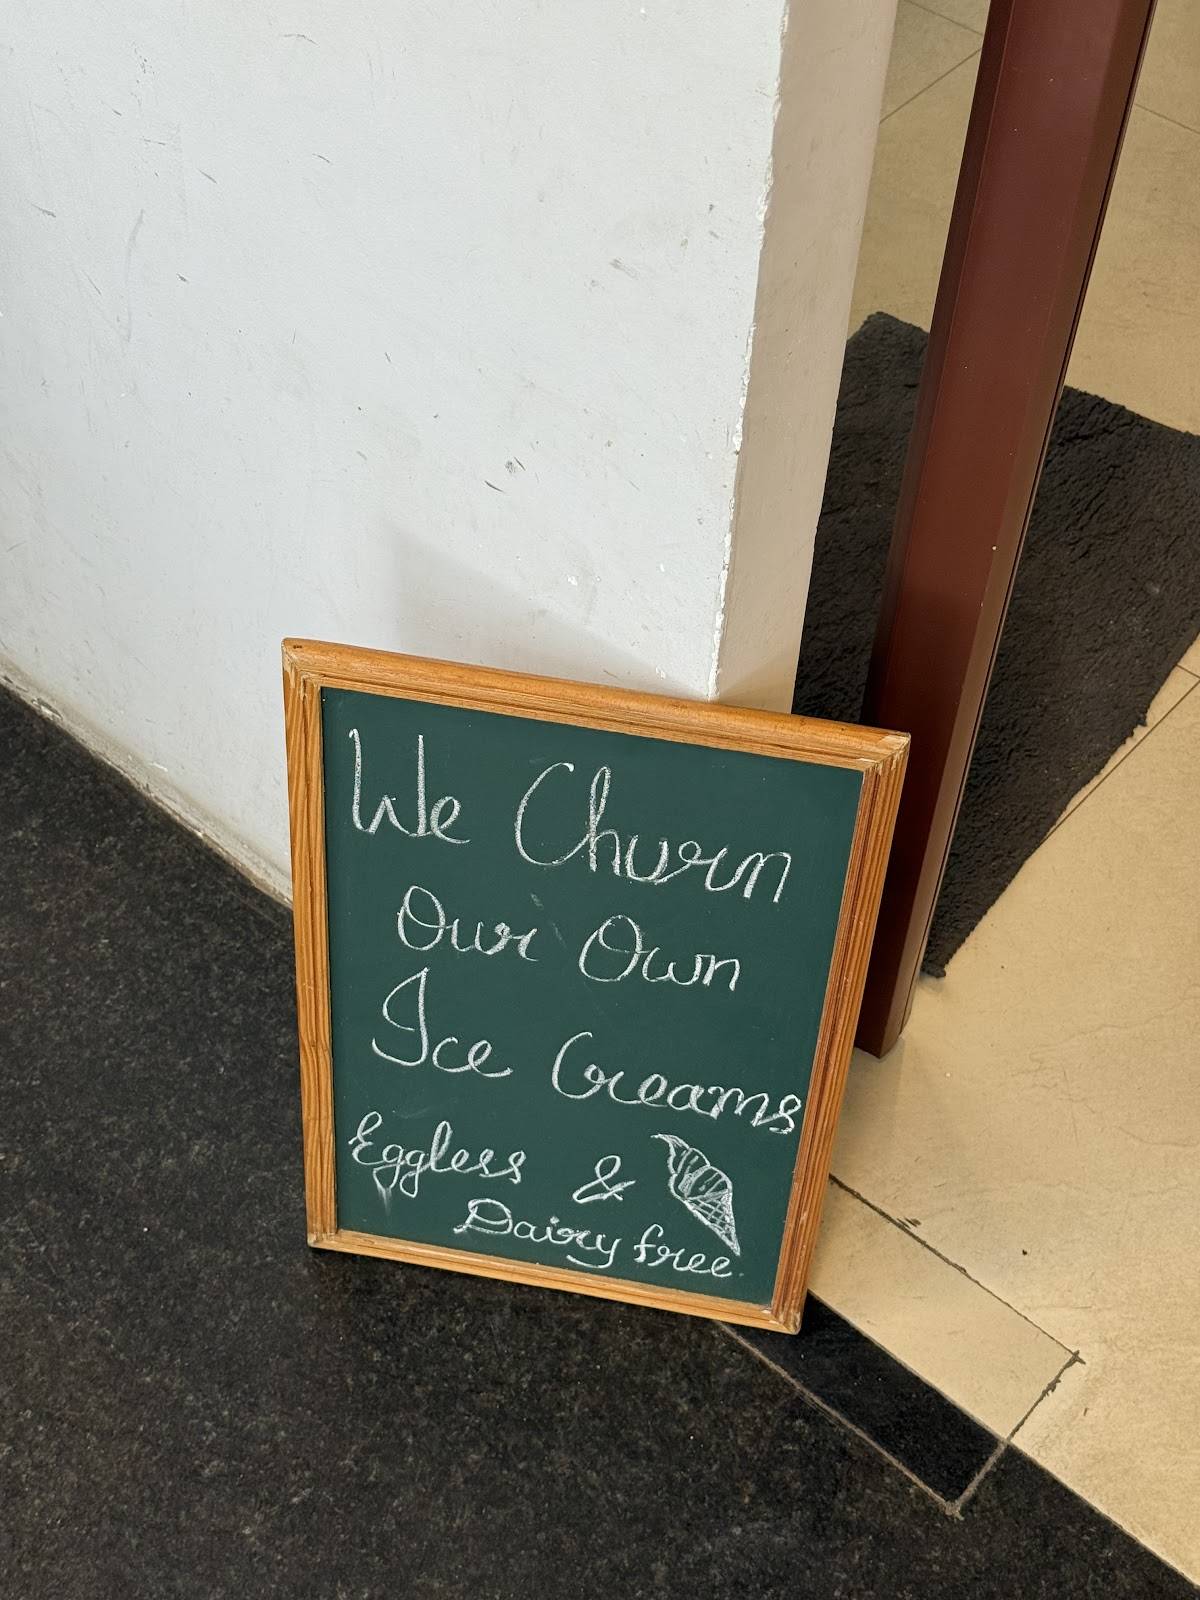 We Churn
Our Own
Ice Creams
Eggless &
Dairy free.